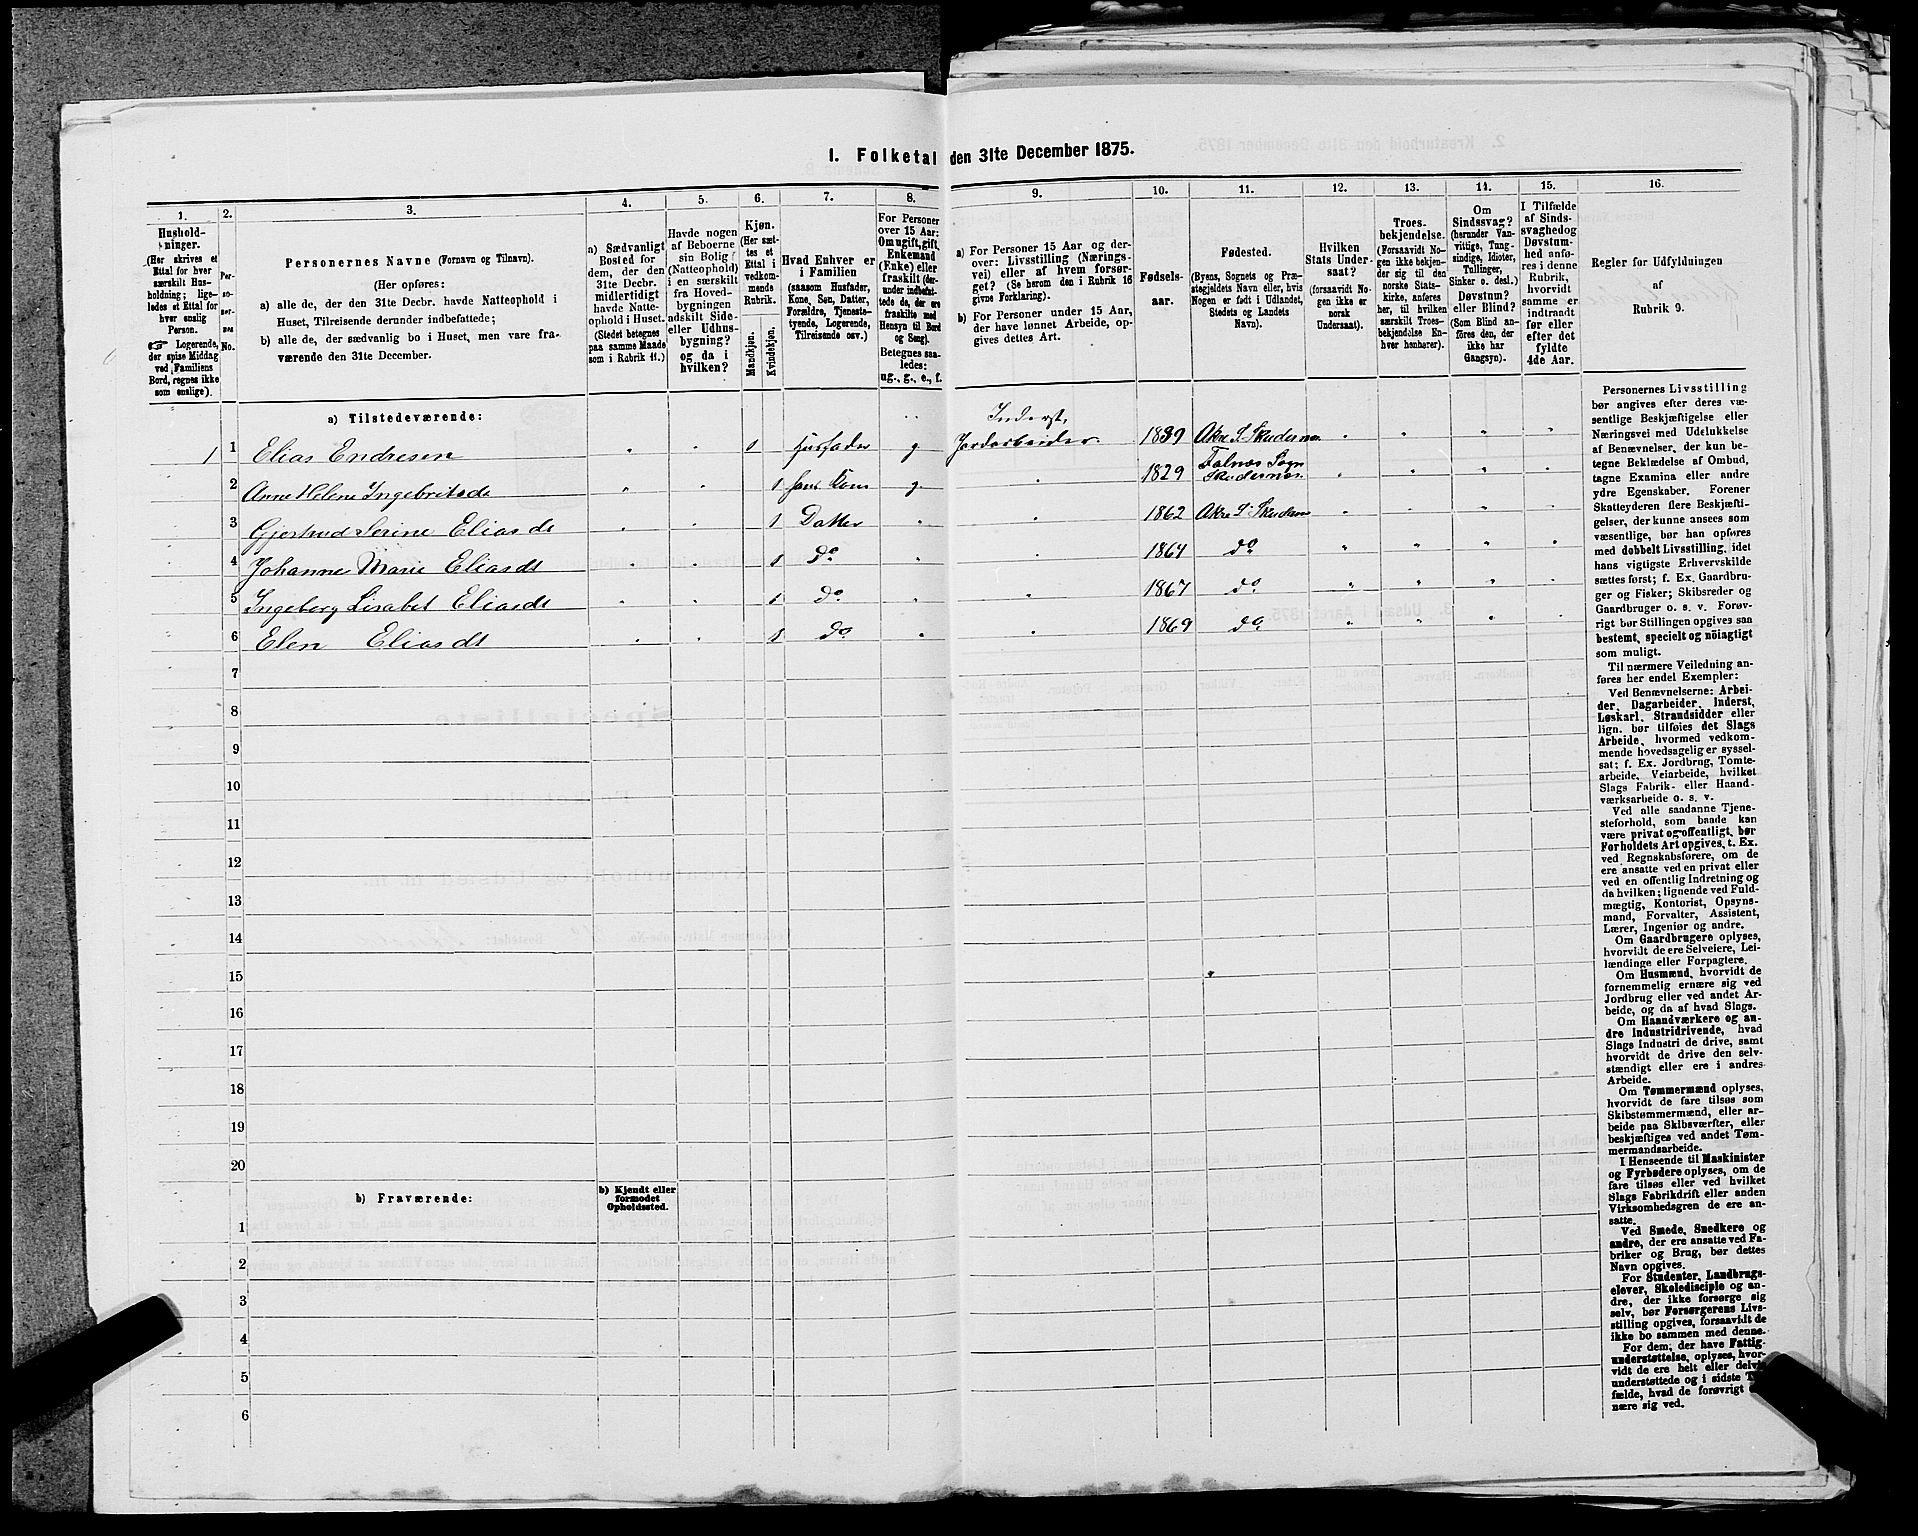 1. Folketal den 31te December 1875.
1.
2.
3.
4.
5.
6.
7.
8.
9.
10.
11.
12.
13.
14.
15.
16.
Hushold-
ninger.
(Her skrives et
Ettal for hver
særskilt Hus-
holdning; lige-
ledes et Ettal for
hver enslig
Person.
☞ Logerende,
der spise Middag
ved Familiens
Bord, regnes ikke
som enslige).
Per-
so-
ner-
nes
No.
Personernes Navne (Fornavn og Tilnavn).
(Her opføres:
a) alle de, der den 31te Decbr. havde Natteophold i
Huset, Tilreisende derunder indbefattede;
b) alle de, der sædvanlig bo i Huset, men vare fra-
værende den 31te December.
a) Sædvanligt
Bosted for
dem, der den
31te Decbr.
midlertidigt
havde Natte-
ophold i Huset.
(Stedet betegnes
paa samme Maade
som i Rubrik 11.)
Havde nogen
af Beboerne
sin Bolig
(Natteophold)
i en særskilt
fra Hoved-
bygningen
adskilt Side-
eller Udhus-
bygning?
og da i
hvilken?
Kjøn.
(Her sæt-
tes et
Ettal i
vedkom-
mende
Rubrik.
Mandkjøn.
Kvindekjøn.
Hvad Enhver er
i Familien
(saasom Husfader,
Kone, Søn, Datter,
Forældre, Tjeneste-
tyende, Logerende,
Tilreisende osv.)
For Personer
over 15 Aar:
Om ugift, gift,
Enkemand
(Enke) eller
fraskilt (der-
under indbefat-
tede de, der ere
fraskilte med
Hensyn til Bord
og Seng).
Betegnes saa-
ledes:
ug., g., e., f.
a) For Personer 15 Aar og der-
over: Livsstilling (Nærings-
vei) eller af hvem forsør-
get? (Se herom den i Rubrik 16
givne Forklaring).
b) For Personer under 15 Aar,
der have lønnet Arbeide, op-
gives dettes Art.
Fødsels-
aar.
Fødested.
(Byens, Sognets og Præ-
stegjeldets Navn eller, hvis
Nogen er født i Udlandet,
Stedets og Landets
Navn).
Hvilken
Stats Under-
saat?
(forsaavidt No-
gen ikke er
norsk
Undersaat).
Troes-
bekjendelse.
(Forsaavidt No-
gen ikke bekjen-
der sig til den
norske Stats-
kirke, anføres
her, til hvilken
særskilt Troes-
bekjendelse En-
hver henhører).
Om
Sindssvag?
(herunder Van-
vittige, Tung-
sindige, Idioter,
Tullinger,
Sinker o. desl.)
Døvstum?
eller Blind?
(Som Blind an-
føres den, der
ikke har
Gangsyn).
I Tilfælde
af Sinds-
svaghed og
Døvstum-
hed anføres
i denne
Rubrik,
hvorvidt
samme er
indtraadt
før eller
efter det
fyldte
4de Aar.
Regler for Udfyldningen
af
Rubrik 9.
a) Tilstedeværende:
Inderst,
1 1 Elias Endresen " " 1 Husfader g Jordarbeider 1839 Akre S. Skudesnes " " " "
2 Anne Helene Ingebritsdt " " 1 hans Kone g " 1829 Falnæs Sogn Skudesnes " " " "
3 Gjertrud Serine Eliasdt " " 1 Datter " " 1862 Akre S. Skudesn " " " "
4 Johanne Marie Eliasdt " " 1 Do " " 1864 do " " " "
5 Ingeborg Lisabet Eliasdt " " 1 Do " " 1867 do " " " "
6 Elen Eliasdt " " 1 Do " " 1869 do " " " "
7
8
9
10
11
12
13
14
15
16
17
18
19
20
b) Fraværende:
b) Kjendt eller
formodet
Opholdssted.
1
2
3
4
5
6
Personernes Livsstilling
bør angives efter deres væ-
sentlige Beskjæftigelse eller
Næringsvei med Udelukkelse
af Benævnelser, der kun be-
tegne Beklædelse af Ombud,
tagne Examina eller andre
ydre Egenskaber. Forener
Skatteyderen flere Beskjæfti-
gelser, der kunne ansees som
væsentlige, bør han opføres
med dobbelt Livsstilling, idet
hans vigtigste Erhvervskilde
sættes først; f. Ex. Gaardbru-
ger og Fisker; Skibsreder og
Gaardbruger o. s. v. Forøv-
rigt bør Stillingen opgives saa
bestemt, specielt og nøiagtigt
som muligt.
Til nærmere Veiledning an-
føres her endel Exempler:
Ved Benævnelserne: Arbei-
der, Dagarbeider, Inderst,
Løskarl, Strandsidder eller
lign. bør tilføies det Slags
Arbeide, hvormed vedkom-
mende hovedsagelig er syssel-
sat; f. Ex. Jordbrug, Tomte-
arbeide, Veiarbeide, hvilket
Slags Fabrik- eller Haand-
værksarbeide o. s. v.
Ved alle saadanne Tjene-
steforhold, som baade kan
være privat og offentligt, bør
Forholdets Art opgives, t. Ex.
ved Regnskabsførere, om de
ere ansatte ved en privat eller
ved en offentlig Indretning og
da hvilken; lignende ved Fuld-
mægtig, Kontorist, Opsyns-
mand, Forvalter, Assistent,
Lærer, Ingeniør og andre.
Om Gaardbrugere oplyses,
hvorvidt de ere Selveiere, Lei-
lændinge eller Forpagtere.
Om Husmænd, hvorvidt de
fornemmelig ernære sig ved
Jordbrug eller ved andet Ar-
beide, og da af hvad Slags.
Om Haandværkere og an-
dre Industridrivende, hvad
Slags Industri de drive, samt
hvorvidt de drive den selv-
stændigt eller ere i andres
Arbeide.
Om Tømmermænd oplyses,
hvorvidt de fare tilsøs som
Skibstømmermænd, eller ar-
beide paa Skibsværfter, eller
beskjæftiges ved andet Tøm-
mermandsarbeide.
I Henseende til Maskinister
og Fyrbødere oplyses, om de
fare tilsøs eller ved hvilket
Slags Fabrikdrift eller anden
Virksomhedsgren de ere an-
satte.
Ved Smede, Snedkere og
andre, der ere ansatte ved Fa-
briker og Brug, bør dettes
Navn opgives.
For Studenter, Landbrugs-
elever, Skoledisciple og an-
dre, der ikke forsørge sig
selv, bør Forsørgerens Livs-
stilling opgives, forsaavidt de
ikke bo sammen med denne.
For dem, der have Fattig-
understøttelse, oplyses, hvor-
vidt de ere helt eller delvis
understøttede og i sidste
fælde, hvad de forøvrigt
nære sig ved.